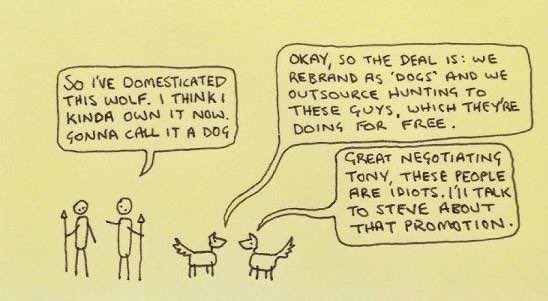 SO I'VE DOMESTICATED
THIS WOLF. I THINK I
KINDA OWN IT NOW.
GONNA CALL IT A DOG
OKAY, SO THE DEAL IS: WE
REBRAND AS 'DOGS' AND WE
OUTSOURCE HUNTING TO
THESE GUYS, WHICH THEY'RE
DOING FOR FREE.
GREAT NEGOTIATING
TONY, THESE PEOPLE
ARE IDIOTS. I'll TALK
TO STEVE ABOUT
THAT PROMOTION.